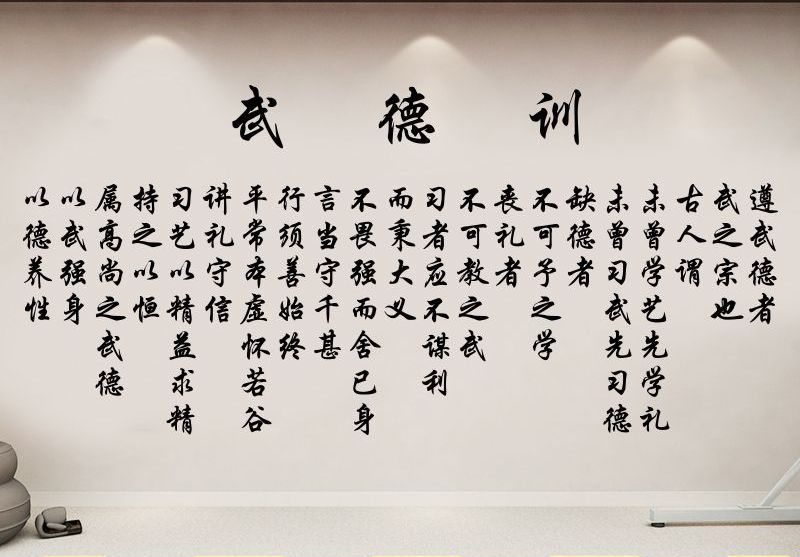 武德训
遵武德者
武之宗也
古人谓
未曾学艺先学礼
未曾习武先习德
缺德者
不可予之学
丧礼者
不可教之武
习者应不谋利
而秉大义
不畏强而舍已身
言当守千甚
行须善始终
平常本虚怀若谷
讲礼守信
习艺以精益求精
持之以恒
属高尚之武德
以武强身
以德养性